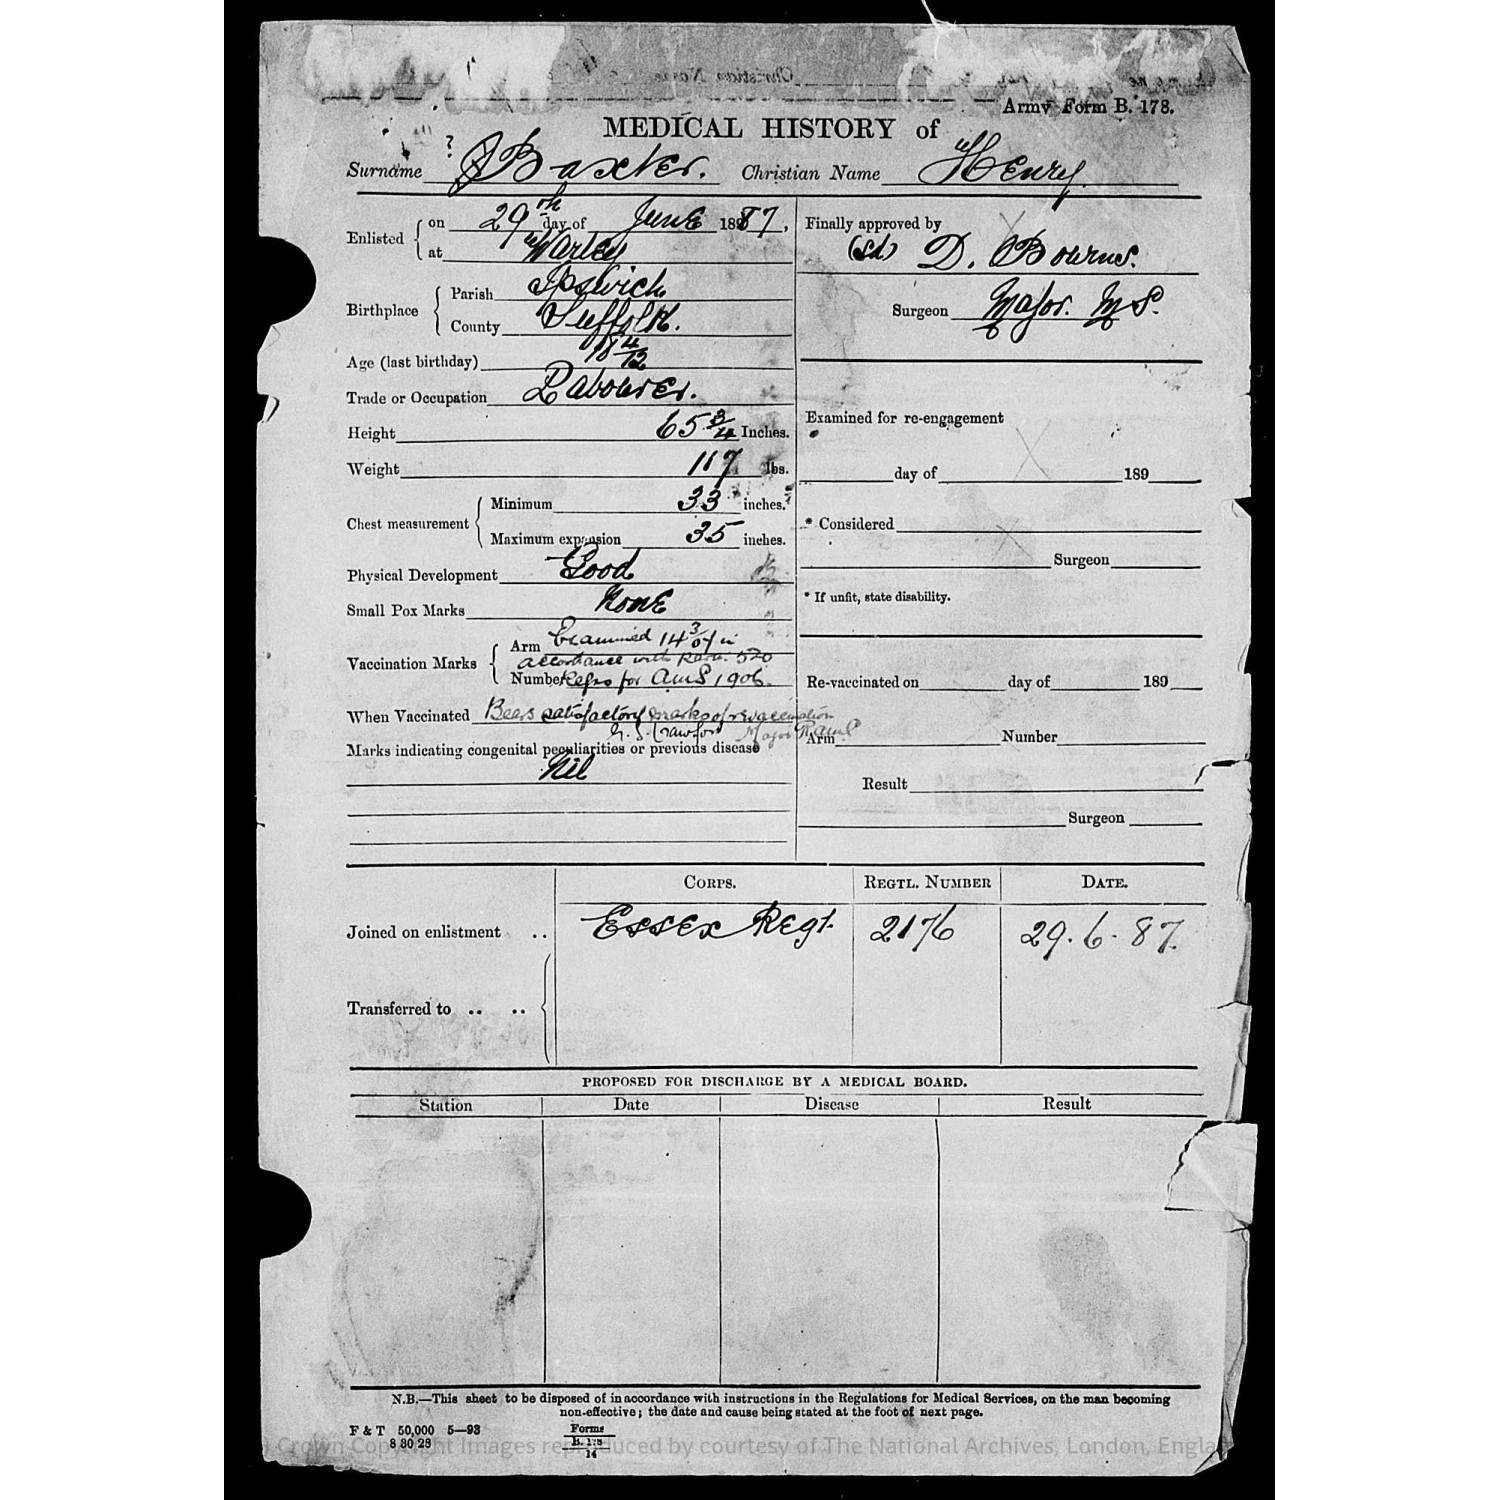 Army Form B. 178.
MEDICAL HISTORY of
Surname Baxter. Christian Name Henry
Enlisted on 29th day of June 1887,
at Warley
Birthplace Parish Ipswich
County Suffolk.
Age (last birthday) 18 4/12
Trade or Occupation Labourer.
Height 65 3/4 Inches.
Weight 117 lbs.
Chest measurement Minimum 33 inches.
Maximum expansion 35 inches.
Physical Development Good
Small Pox Marks None
Vaccination Marks Arm Examined 14 3/07 in
accordance with Para. 520
Number Regns for AMS 1906.
When Vaccinated Bears satisfactory marks of revaccination
G. S. Crawford Major RAMC
Marks indicating congenital peculiarities or previous disease
Nil
Finally approved by
(Sd) D. Bourns.
Surgeon Major. M S.
Examined for re-engagement
day of 189
* Considered
Surgeon
* If unfit, state disability.
Re-vaccinated on day of 189
Arm Number
Result
Surgeon
CORPS. REGTL. NUMBER DATE.
Joined on enlistment .. Essex Regt. 2176 29.6.87.
Transferred to .. ..
PROPOSED FOR DISCHARGE BY A MEDICAL BOARD.
Station Date Disease Result
N.B.—This sheet to be disposed of in accordance with instructions in the Regulations for Medical Services, on the man becoming
non-effective; the date and cause being stated at the foot of next page.
F & T 50,000 5—93
8 30 23
Forms
B. 178
14
Crown Copyright Images reproduced by courtesy of The National Archives, London, Engla